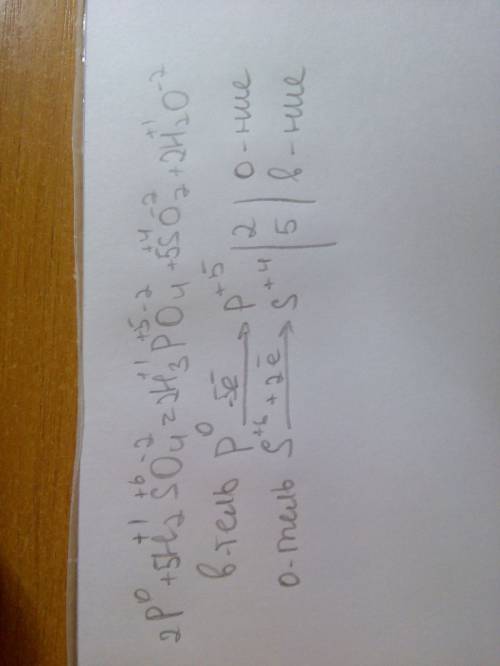 2P⁰ + 5H₂⁺¹S⁺⁶O₄⁻² = 2H₃⁺¹P⁺⁵O₄⁻² + 5S⁺⁴O₂⁻² + 2H₂⁺¹O⁻²
в-тель P⁰ -5e̅→ P⁺⁵ | 2 | о-ние
о-тель S⁺⁶ +2e̅→ S⁺⁴ | 5 | в-ние